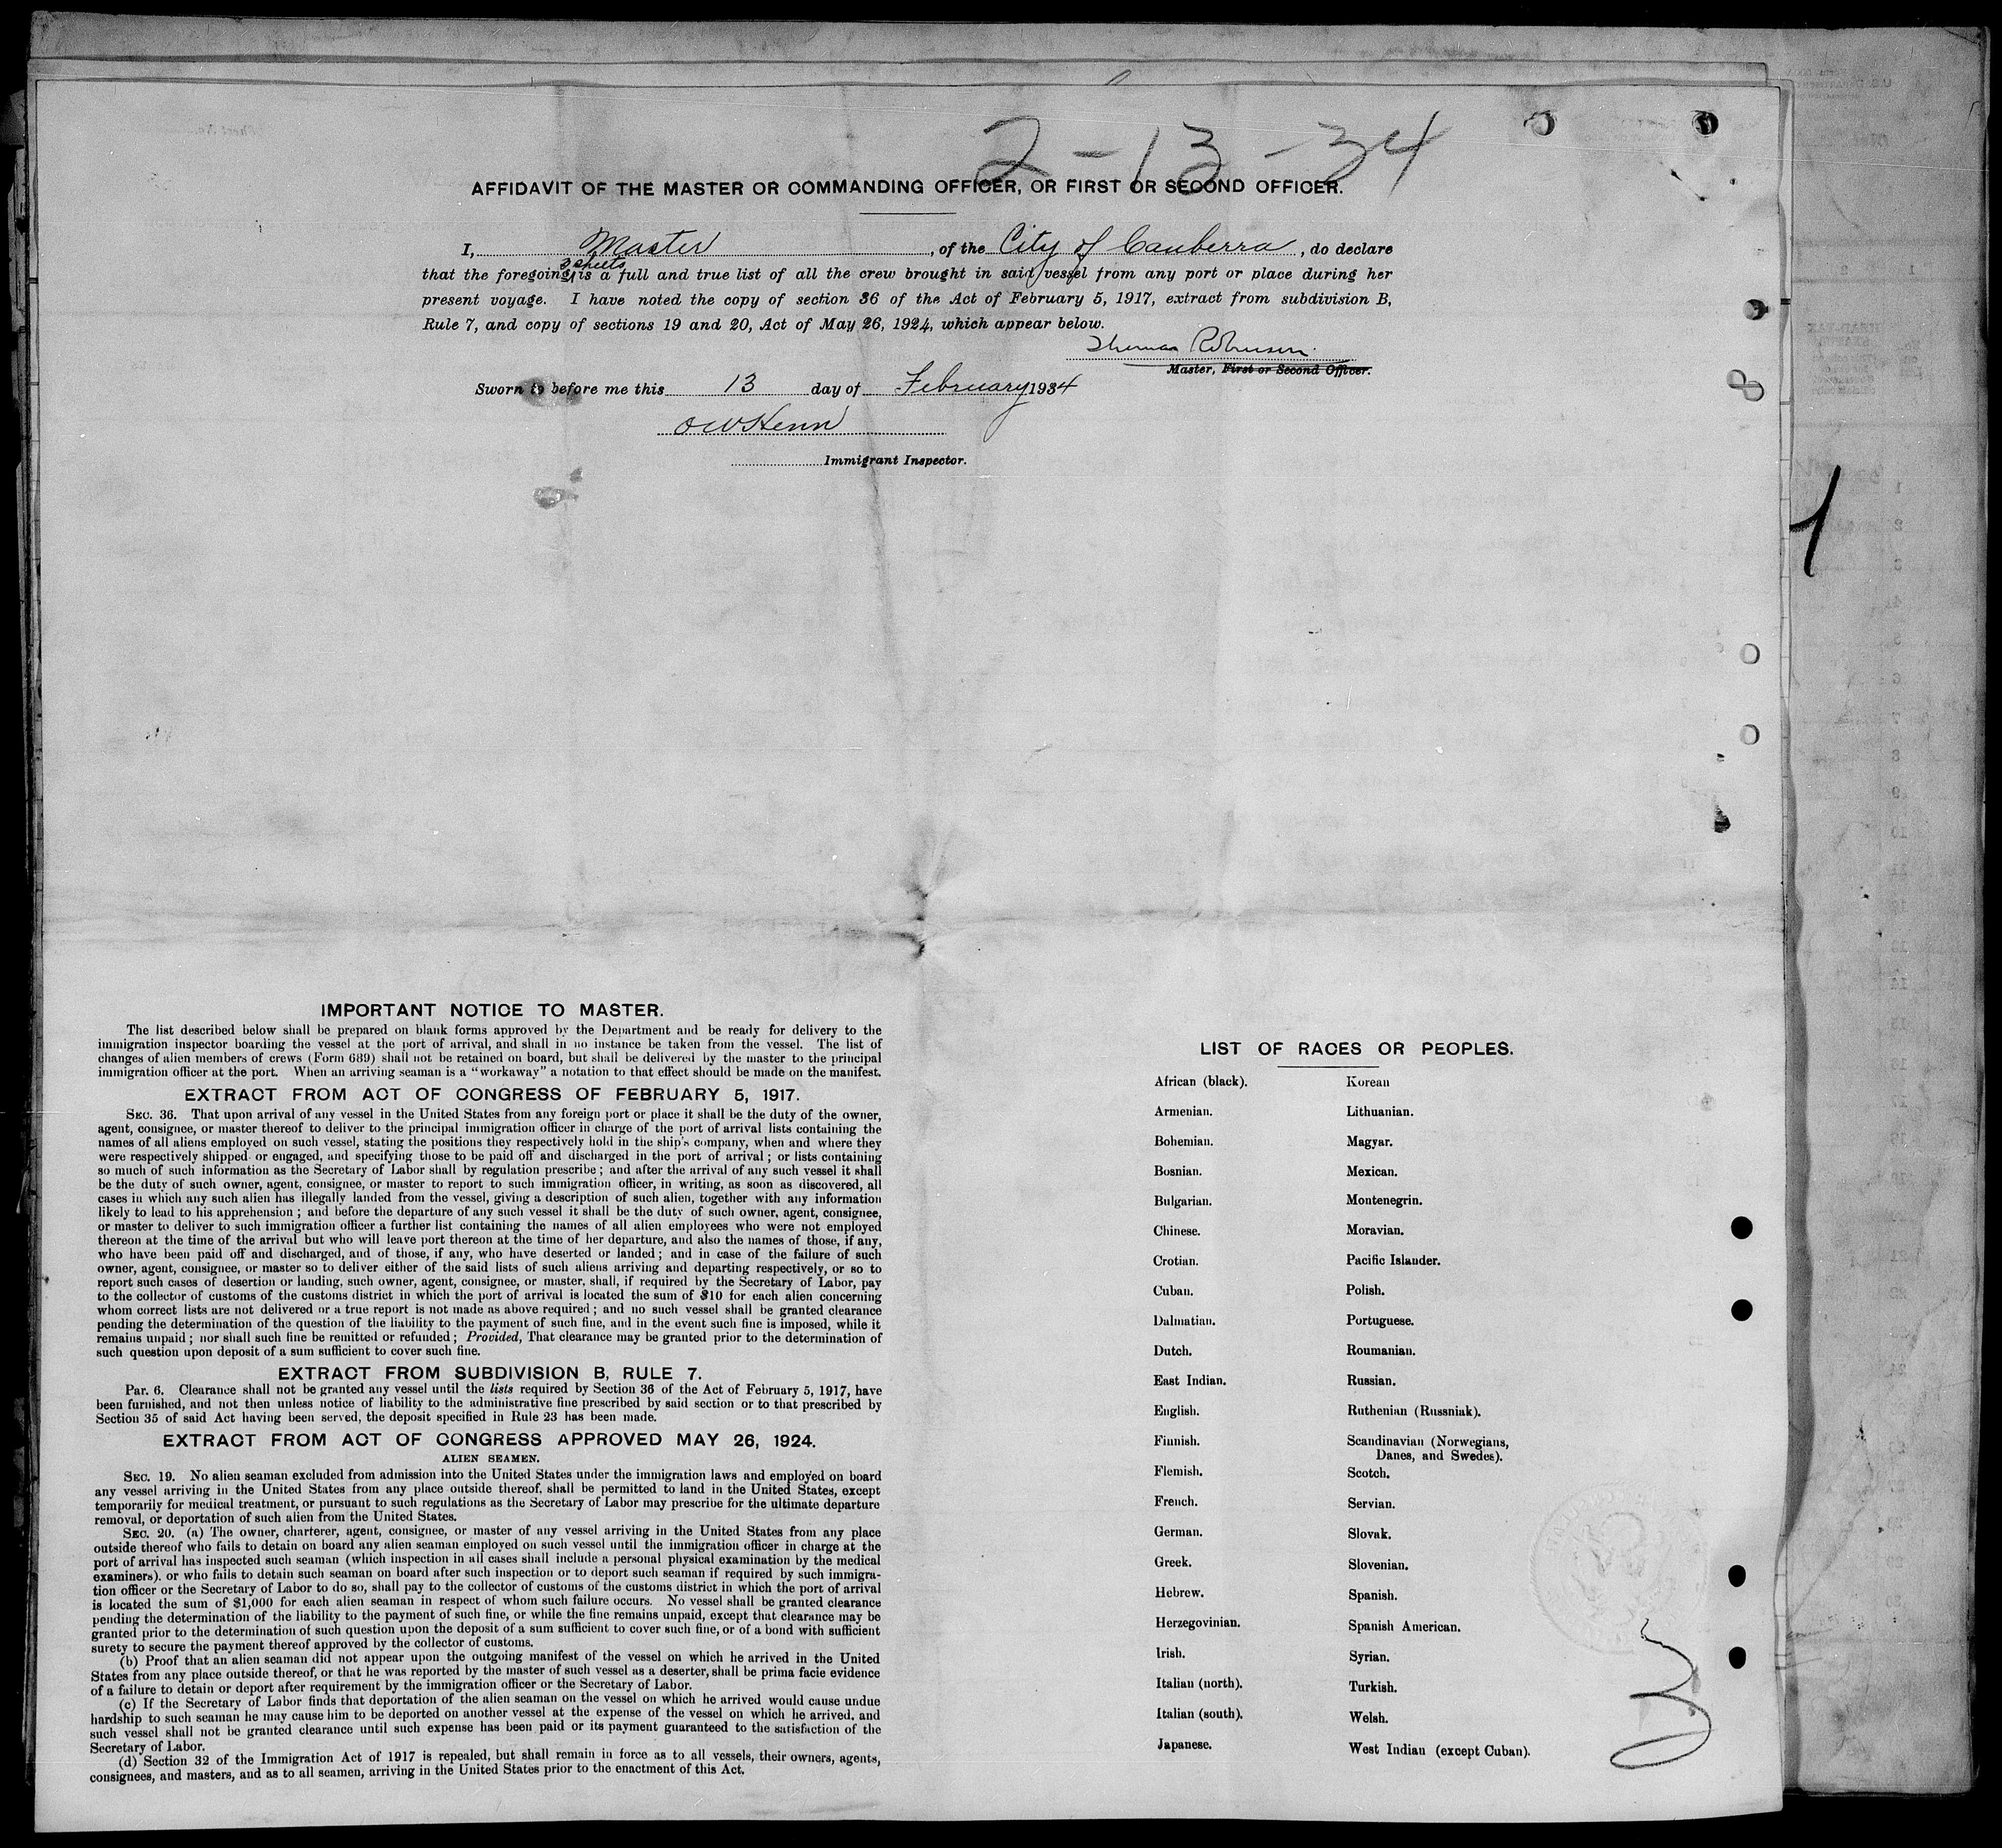 2-13-34
AFFIDAVIT OF THE MASTER OR COMMANDING OFFICER, OR FIRST OR SECOND OFFICER.
I, Master, of the City of Canberra, do declare
3 sheets
that the foregoing is a full and true list of all the crew brought in said vessel from any port or place during her
present voyage. I have noted the copy of section 36 of the Act of February 5, 1917, extract from subdivision B,
Rule 7, and copy of sections 19 and 20, Act of May 26, 1924, which appear below.
Thomas Robinson
Master, First or Second Officer.
Sworn to before me this 13 day of February 1934
Immigrant Inspector.
8
1
IMPORTANT NOTICE TO MASTER.
The list described below shall be prepared on blank forms approved by the Department and be ready for delivery to the
immigration inspector boarding the vessel at the port of arrival, and shall in no instance be taken from the vessel. The list of
changes of alien members of crews (Form 689) shall not be retained on board, but shall be delivered by the master to the principal
immigration officer at the port. When an arriving seaman is a "workaway" a notation to that effect should be made on the manifest.
EXTRACT FROM ACT OF CONGRESS OF FEBRUARY 5, 1917.
SEC. 36. That upon arrival of any vessel in the United States from any foreign port or place it shall be the duty of the owner,
agent, consignee, or master thereof to deliver to the principal immigration officer in charge of the port of arrival lists containing the
names of all aliens employed on such vessel, stating the positions they respectively hold in the ship's company, when and where they
were respectively shipped or engaged, and specifying those to be paid off and discharged in the port of arrival; or lists containing
so much of such information as the Secretary of Labor shall by regulation prescribe; and after the arrival of any such vessel it shall
be the duty of such owner, agent, consignee, or master to report to such immigration officer, in writing, as soon as discovered, all
cases in which any such alien has illegally landed from the vessel, giving a description of such alien, together with any information
likely to lead to his apprehension; and before the departure of any such vessel it shall be the duty of such owner, agent, consignee,
or master to deliver to such immigration officer a further list containing the names of all alien employees who were not employed
thereon at the time of the arrival but who will leave port thereon at the time of her departure, and also the names of those, if any,
who have been paid off and discharged, and of those, if any, who have deserted or landed; and in case of the failure of such
owner, agent, consignee, or master so to deliver either of the said lists of such aliens arriving and departing respectively, or so to
report such cases of desertion or landing, such owner, agent, consignee, or master, shall, if required by the Secretary of Labor, pay
to the collector of customs of the customs district in which the port of arrival is located the sum of $10 for each alien concerning
whom correct lists are not delivered or a true report is not made as above required; and no such vessel shall be granted clearance
pending the determination of the question of the liability to the payment of such fine, and in the event such fine is imposed, while it
remains unpaid; nor shall such fine be remitted or refunded; Provided, That clearance may be granted prior to the determination of
such question upon deposit of a sum sufficient to cover such fine.
EXTRACT FROM SUBDIVISION B, RULE 7.
Par. 6. Clearance shall not be granted any vessel until the lists required by Section 36 of the Act of February 5, 1917, have
been furnished, and not then unless notice of liability to the administrative fine prescribed by said section or to that prescribed by
Section 35 of said Act having been served, the deposit specified in Rule 23 has been made.
EXTRACT FROM ACT OF CONGRESS APPROVED MAY 26, 1924.
ALIEN SEAMEN.
SEC. 19. No alien seaman excluded from admission into the United States under the immigration laws and employed on board
any vessel arriving in the United States from any place outside thereof, shall be permitted to land in the United States, except
temporarily for medical treatment, or pursuant to such regulations as the Secretary of Labor may prescribe for the ultimate departure
removal, or deportation of such alien from the United States.
SEC. 20. (a) The owner, charterer, agent, consignee, or master of any vessel arriving in the United States from any place
outside thereof who fails to detain on board any alien seaman employed on such vessel until the immigration officer in charge at the
port of arrival has inspected such seaman (which inspection in all cases shall include a personal physical examination by the medical
examiners). or who fails to detain such seaman on board after such inspection or to deport such seaman if required by such immigra-
tion officer or the Secretary of Labor to do so, shall pay to the collector of customs of the customs district in which the port of arrival
is located the sum of $1,000 for each alien seaman in respect of whom such failure occurs. No vessel shall be granted clearance
pending the determination of the liability to the payment of such fine, or while the fine remains unpaid, except that clearance may be
granted prior to the determination of such question upon the deposit of a sum sufficient to cover such fine, or of a bond with sufficient
surety to secure the payment thereof approved by the collector of customs.
(b) Proof that an alien seaman did not appear upon the outgoing manifest of the vessel on which he arrived in the United
States from any place outside thereof, or that he was reported by the master of such vessel as a deserter, shall be prima facie evidence
of a failure to detain or deport after requirement by the immigration officer or the Secretary of Labor.
(c) If the Secretary of Labor finds that deportation of the alien seaman on the vessel on which he arrived would cause undue
hardship to such seaman he may cause him to be deported on another vessel at the expense of the vessel on which he arrived, and
such vessel shall not be granted clearance until such expense has been paid or its payment guaranteed to the satisfaction of the
Secretary of Labor.
(d) Section 32 of the Immigration Act of 1917 is repealed, but shall remain in force as to all vessels, their owners, agents,
consignees, and masters, and as to all seamen, arriving in the United States prior to the enactment of this Act.
LIST OF RACES OR PEOPLES.
African (black). Korean
Armenian. Lithuanian.
Bohemian. Magyar.
Bosnian. Mexican.
Bulgarian. Montenegrin.
Chinese. Moravian.
Crotian. Pacific Islander.
Cuban. Polish.
Dalmatian. Portuguese.
Dutch. Roumanian.
East Indian. Russian.
English. Ruthenian (Russniak).
Finnish. Scandinavian (Norwegians,
Danes, and Swedes).
Flemish. Scotch.
French. Servian.
German. Slovak.
Greek. Slovenian.
Hebrew. Spanish.
Herzegovinian. Spanish American.
Irish. Syrian.
Italian (north). Turkish.
Italian (south). Welsh.
Japanese. West Indian (except Cuban).
3